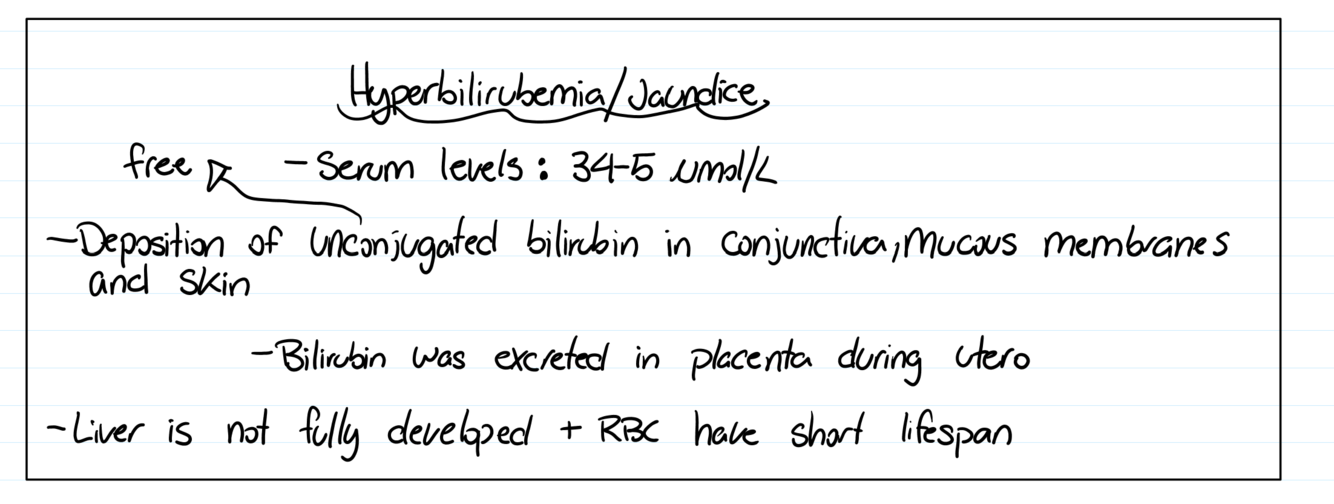 Hyperbilirubemia/Jaundice
free - Serum levels: 34-5 umol/L
- Deposition of unconjugated bilirubin in conjunctiva, mucous membranes
and skin
- Bilirubin was excreted in placenta during utero
- Liver is not fully developed + RBC have short lifespan